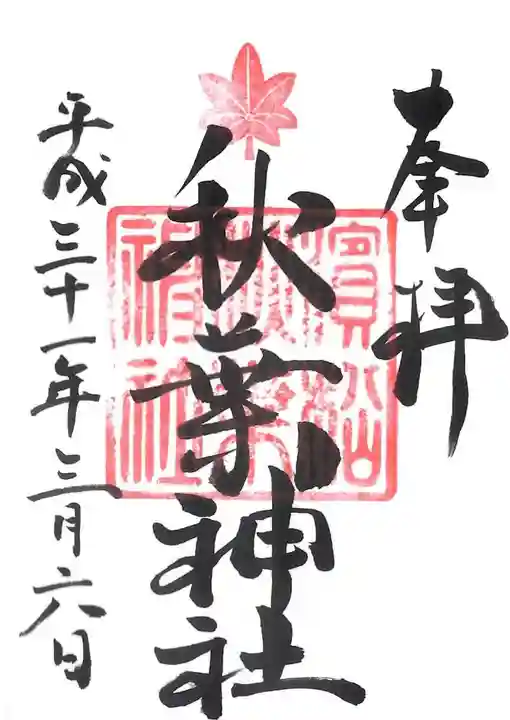 奉拝
秋葉神社
濱松
秋葉
神社
平成三十一年三月六日